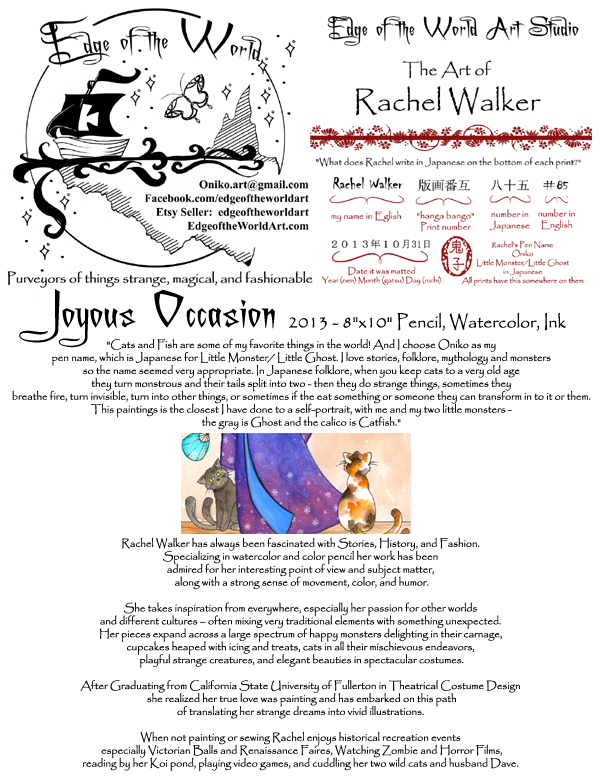 Edge of the World
Oniko.art@gmail.com
Facebook.com/edgeoftheworldart
Etsy Seller: edgeoftheworldart
EdgeoftheWorldArt.com
Purveyors of things strange, magical, and fashionable
Edge of the World Art Studio
The Art of
Rachel Walker
"What does Rachel write in Japanese on the bottom of each print?"
Rachel Walker 版画番互 八十五 #85
my name in Eglish "hanga bango" Print number number in Japanese number in English
2013年10月31日 鬼子
Date it was matted
Year (nen) Month (gatsu) Day (nichi)
Rachel's Pen Name
Oniko
Little Monster/Little Ghost
in Japanese
All prints have this somewhere on them
Joyous Occasion 2013 - 8"x10" Pencil, Watercolor, Ink
"Cats and Fish are some of my favorite things in the world! And I choose Oniko as my
pen name, which is Japanese for Little Monster/ Little Ghost. I love stories, folklore, mythology and monsters
so the name seemed very appropriate. In Japanese folklore, when you keep cats to a very old age
they turn monstrous and their tails split into two - then they do strange things, sometimes they
breathe fire, turn invisible, turn into other things, or sometimes if the eat something or someone they can transform in to it or them.
This paintings is the closest I have done to a self-portrait, with me and my two little monsters -
the gray is Ghost and the calico is Catfish."
Rachel Walker has always been fascinated with Stories, History, and Fashion.
Specializing in watercolor and color pencil her work has been
admired for her interesting point of view and subject matter,
along with a strong sense of movement, color, and humor.
She takes inspiration from everywhere, especially her passion for other worlds
and different cultures – often mixing very traditional elements with something unexpected.
Her pieces expand across a large spectrum of happy monsters delighting in their carnage,
cupcakes heaped with icing and treats, cats in all their mischievous endeavors,
playful strange creatures, and elegant beauties in spectacular costumes.
After Graduating from California State University of Fullerton in Theatrical Costume Design
she realized her true love was painting and has embarked on this path
of translating her strange dreams into vivid illustrations.
When not painting or sewing Rachel enjoys historical recreation events
especially Victorian Balls and Renaissance Faires, Watching Zombie and Horror Films,
reading by her Koi pond, playing video games, and cuddling her two wild cats and husband Dave.